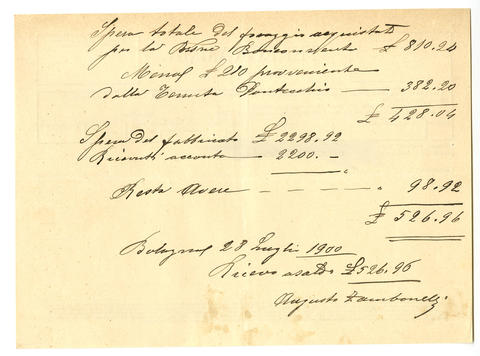 Spesa totale del foraggio acquistato
per la Bovina Buonconvento £ 810.24
Meno £ 210 proveniente
dalla Tenuta Pontecchio — 382.20
£ 428.04
Spesa del fabbricato £ 2298.92
Ricevuti acconto — 2200.—
Resta Avere — — — — 98.92
£ 526.96
Bologna 28 Luglio 1900
Ricevo a saldo £ 526.96
Augusto Zambonelli